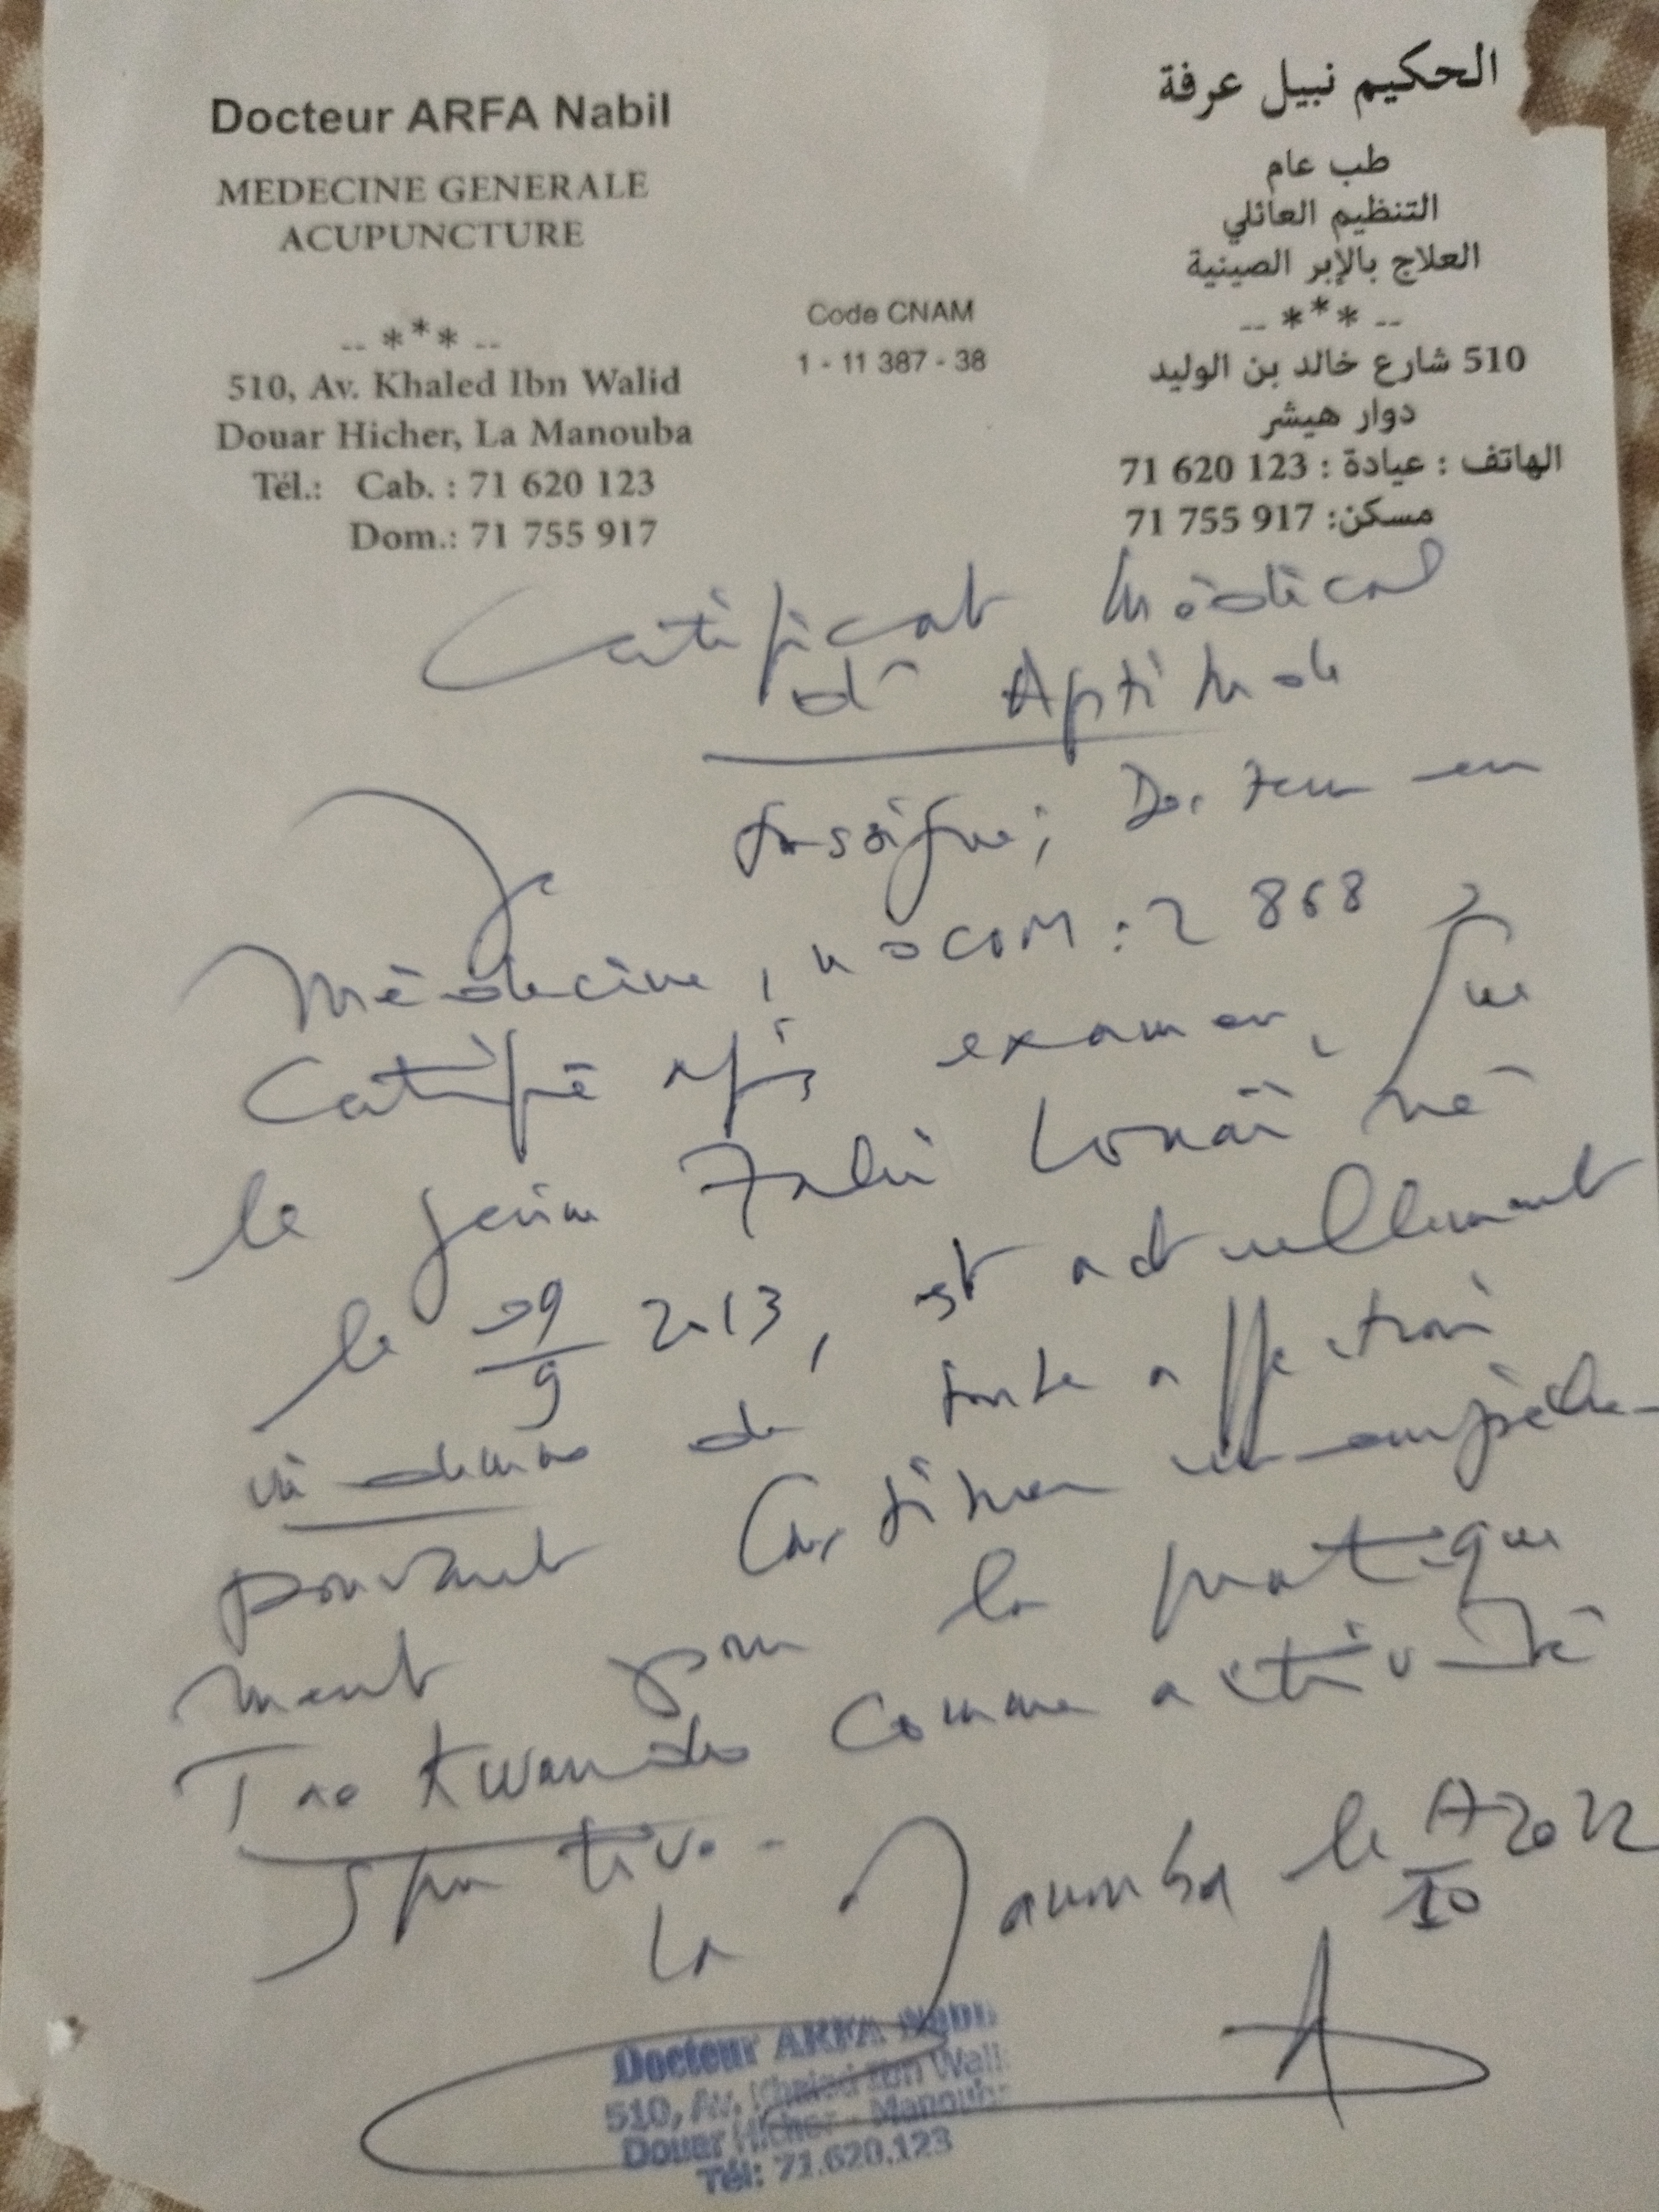 Docteur ARFA Nabil
MEDECINE GENERALE
ACUPUNCTURE
-- *** --
510, Av. Khaled Ibn Walid
Douar Hicher, La Manouba
Tél.: Cab. : 71 620 123
Dom.: 71 755 917
Code CNAM
1 - 11 387 - 38
الحكيم نبيل عرفة
طب عام
التنظيم العائلي
العلاج بالإبر الصينية
-- *** --
510 شارع خالد بن الوليد
دوار هيشر
الهاتف : عيادة : 123 620 71
مسكن: 917 755 71
Certificat Médical
d' Aptitude
Je soussigné, Docteur en
Médecine, n° CNOM : 2 868,
Certifie après examen, que
le jeune Louaï né
le 09/9 2013, est actuellement
indemne de toute affection
pouvant constituer un empêche-
ment pour la pratique
Tae Kwando comme activité
sportive.
La Manouba le 17/10 2022
Docteur ARFA Nabil
510, Av. Khaled Ibn Wali
Douar Hicher - Manouba
Tél: 71.620.123